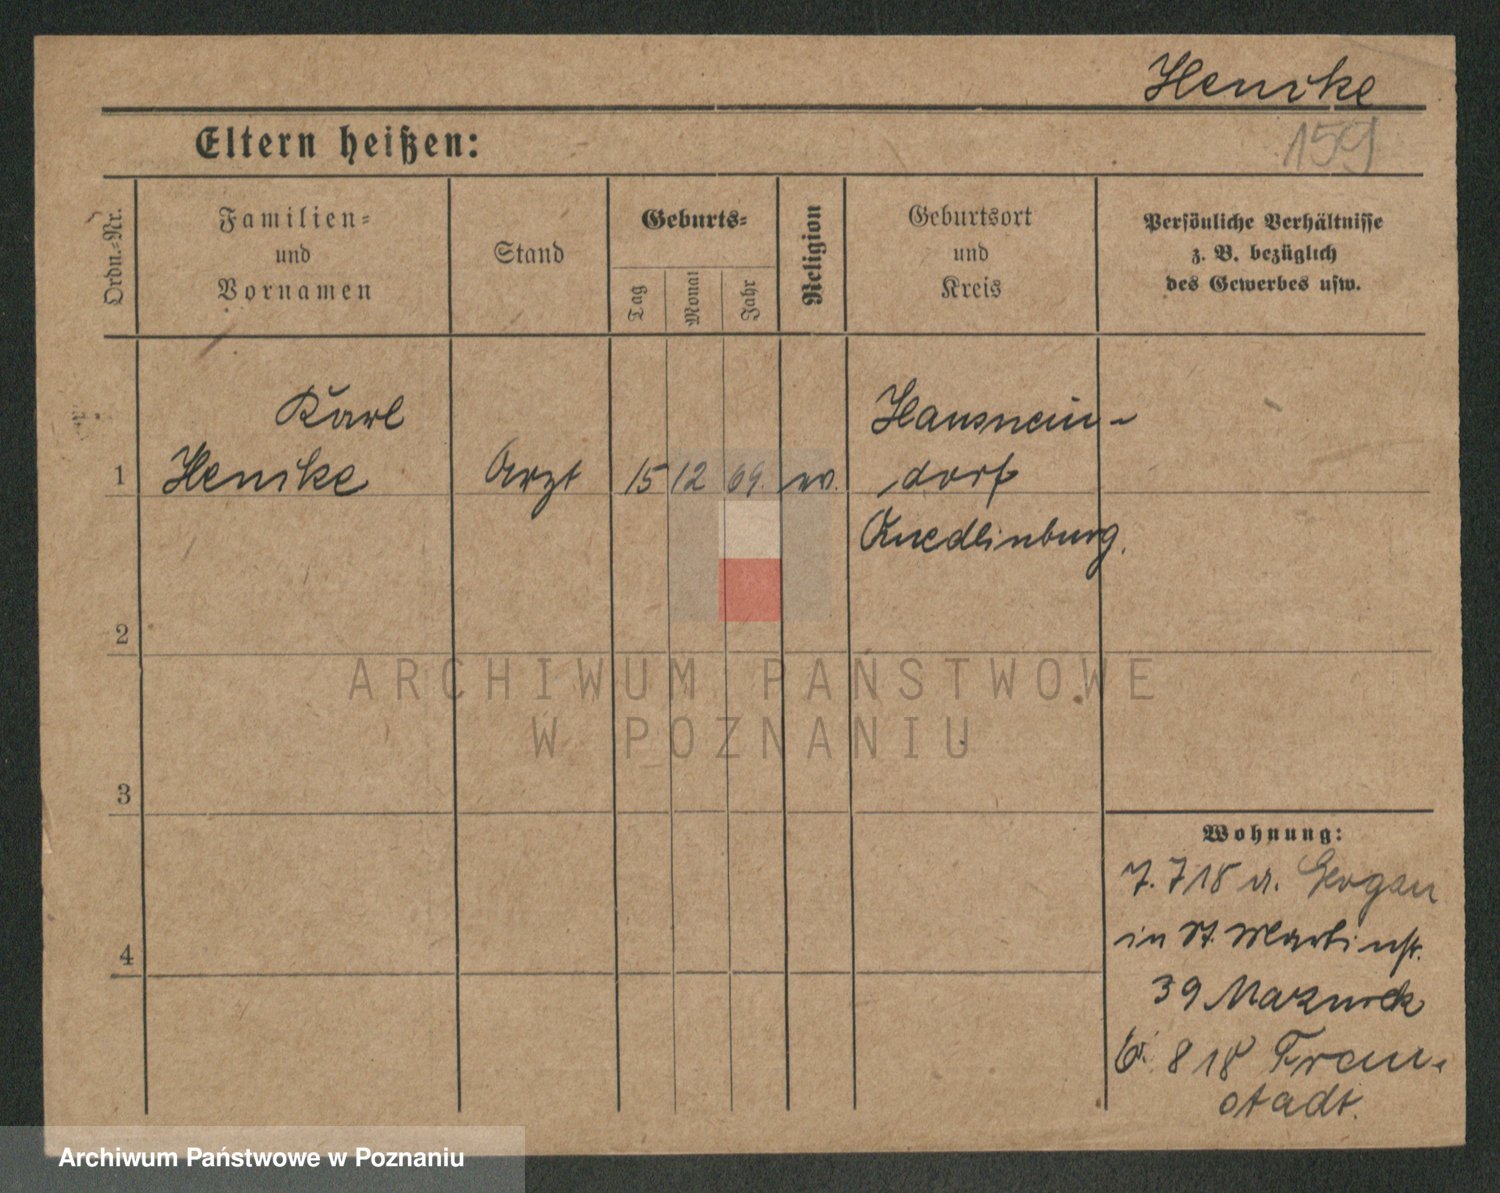 Henike
159
Eltern heißen:
Ordn.-Nr.
Familien-
und
Vornamen
Stand
Geburts-
Tag
Monat
Jahr
Religion
Geburtsort
und
Kreis
Persönliche Verhältnisse
z. B. bezüglich
des Gewerbes usw.
1
Karl
Henike
Arzt
15
12
69.
ev.
Hausnein-
dorf
Quedlinburg.
2
3
4
Wohnung:
7. 7 18 a. Glogau
in St. Martinstr.
39 Mazurek
6. 8 18 Frau-
stadt.
ARCHIWUM PAŃSTWOWE
W POZNANIU
Archiwum Państwowe w Poznaniu